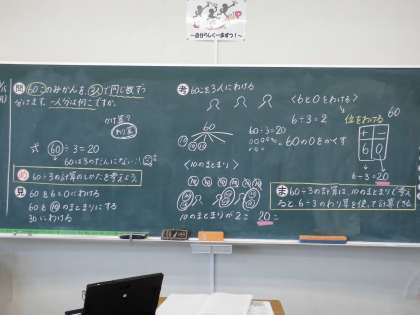 〜自分らしく一歩ずつ！〜
問 60このみかんを、3人で同じ数ずつ
分けます。一人分は何こですか。
かけ算？
わり算
式 60÷3=20
60は3のだんにない…！
め 60÷3の計算のしかたを考えよう。
見 60を6と0にわける
60を⑩のまとまりにする
30にわける
考 60こを3人にわける
60
60÷3=20
⑩⑩⑩
<⑩のまとまり>
10のまとまりが2こ 20こ
<6と0をわける>
6÷3=2
60の0をかくす
位をわける
60
6 0
6÷3=20
ま 60÷3の計算は、10のまとまりで考え
ると、6÷3のわり算を使って計算できる